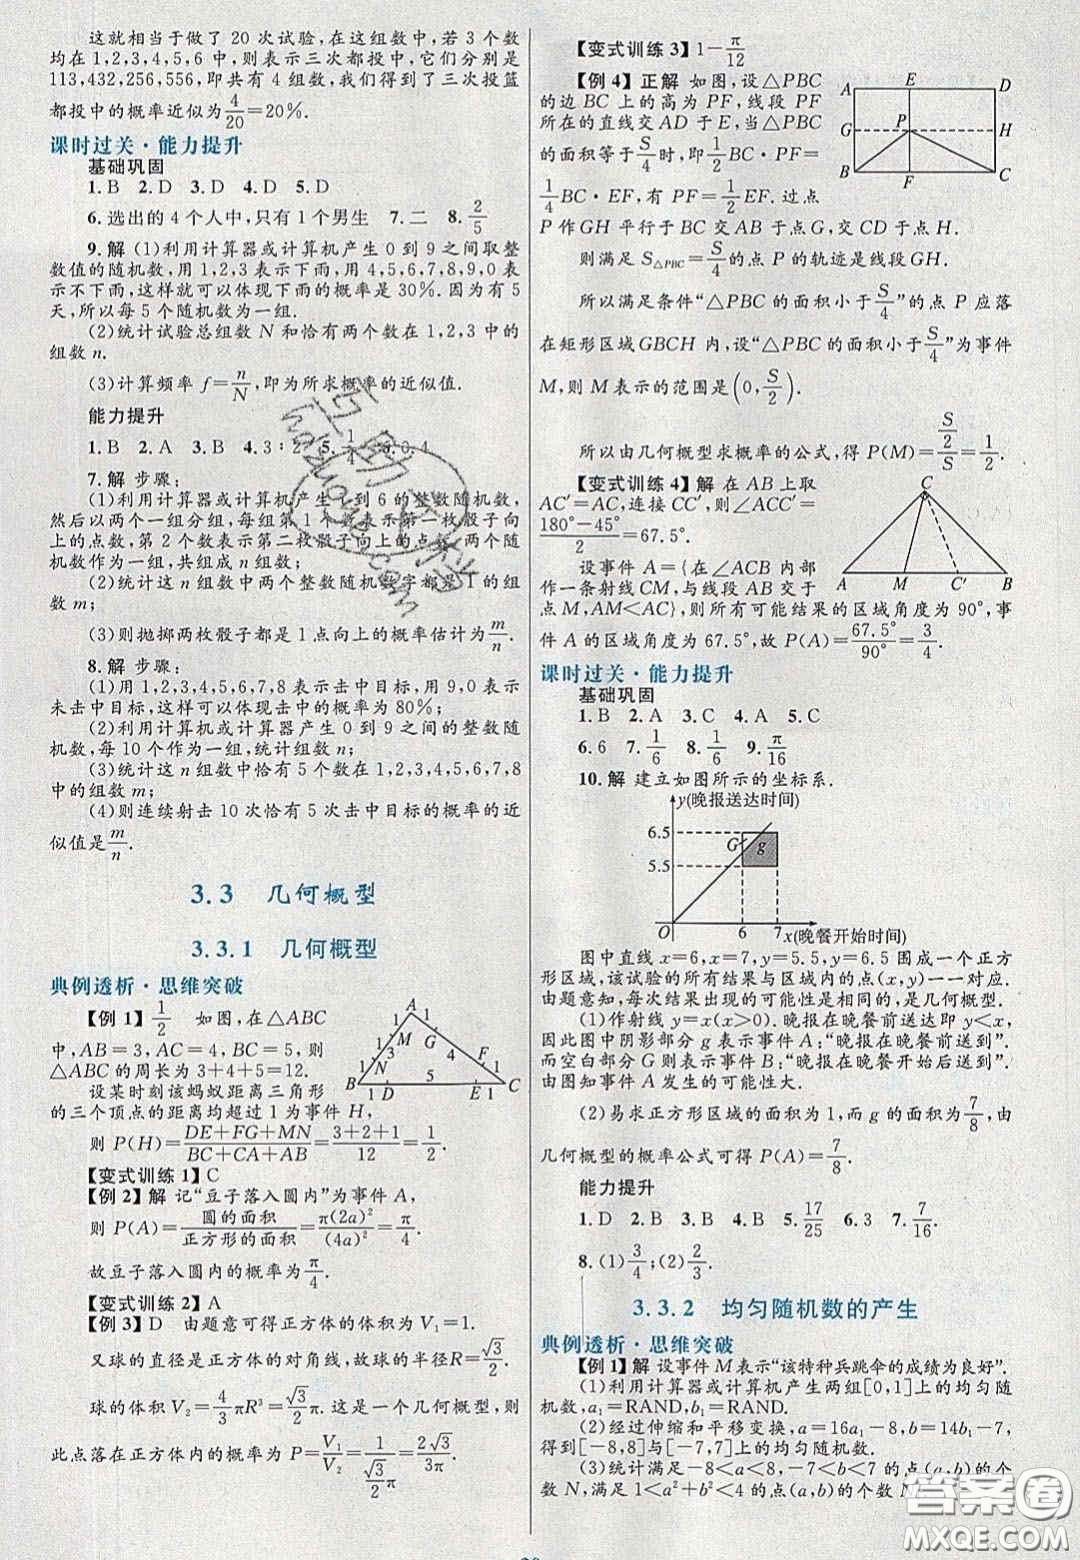 这就相当于做了 20 次试验,在这组数中,若 3 个数
均在1,2,3,4,5,6中,则表示三次都投中,它们分别是
113,432,256,556,即共有 4 组数,我们得到了三次投篮
都投中的概率近似为4/20=20%.
课时过关·能力提升
基础巩固
1.B 2.D 3.D 4.D 5.D
6.选出的 4 个人中,只有 1 个男生 7.二 8.2/5
9.解 (1)利用计算器或计算机产生 0 到 9 之间取整
数值的随机数,用 1,2,3 表示下雨,用 4,5,6,7,8,9,0 表
示不下雨,这样就可以体现下雨的概率是 30%.因为有 5
天,所以每 5 个随机数为一组.
(2)统计试验总组数 N 和恰有两个数在 1,2,3 中的
组数 n.
(3)计算频率 f=n/N,即为所求概率的近似值.
能力提升
1.B 2.A 3.B 4.3∶2 5.1/4 6.0.4
7.解 步骤:
(1)利用计算器或计算机产生 1 到 6 的整数随机数,
然后以两个一组分组,每组第 1 个数表示第一枚骰子向
上的点数,第 2 个数表示第二枚骰子向上的点数,两个随
机数作为一组,共组成 n 组数;
(2)统计这 n 组数中两个整数随机数字都是 1 的组
数 m;
(3)则抛掷两枚骰子都是 1 点向上的概率估计为m/n.
8.解 步骤:
(1)用 1,2,3,4,5,6,7,8 表示击中目标,用 9,0 表示
未击中目标,这样可以体现击中的概率为 80%;
(2)利用计算机或计算器产生 0 到 9 之间的整数随
机数,每 10 个作为一组,统计组数 n;
(3)统计这 n 组数中恰有 5 个数在 1,2,3,4,5,6,7,8
中的组数 m;
(4)则连续射击 10 次恰有 5 次击中目标的概率的近
似值是m/n.
3.3 几何概型
3.3.1 几何概型
典例透析·思维突破
【例 1】1/2 如图,在△ABC
中,AB=3,AC=4,BC=5,则
△ABC 的周长为 3+4+5=12.
设某时刻该蚂蚁距离三角形
的三个顶点的距离均超过 1 为事件 H,
则 P(H)=(DE+FG+MN)/(BC+CA+AB)=(3+2+1)/12=1/2.
A 1 1 M G 1 4 F 1 N 1 B 1 D 5 E 1 C
【变式训练 1】C
【例 2】解 记“豆子落入圆内”为事件 A,
则 P(A)=圆的面积/正方形的面积=π(2a)²/(4a)²=π/4.
故豆子落入圆内的概率为π/4.
【变式训练 2】A
【例 3】D 由题意可得正方体的体积为 V₁=1.
又球的直径是正方体的对角线,故球的半径R=√3/2.
球的体积 V₂=4/3πR³=√3/2π.这是一个几何概型,则
此点落在正方体内的概率为 P=V₁/V₂=1/(√3/2π)=2√3/3π.
【变式训练 3】1−π/12
【例 4】正解 如图,设△PBC
的边 BC 上的高为 PF,线段 PF
所在的直线交 AD 于 E,当△PBC
的面积等于S/4时,即1/2BC·PF=
1/4BC·EF,有 PF=1/2EF.过点
A E D G P H B F C
P 作 GH 平行于 BC 交 AB 于点 G,交 CD 于点 H.
则满足 S△PBC=S/4的点 P 的轨迹是线段GH.
所以满足条件“△PBC 的面积小于S/4”的点 P 应落
在矩形区域GBCH 内,设“△PBC 的面积小于S/4”为事件
M,则 M 表示的范围是(0,S/2).
所以由几何概型求概率的公式,得 P(M)=(S/2)/S=1/2.
【变式训练 4】解 在 AB 上取
AC′=AC,连接 CC′,则∠ACC′=
(180°−45°)/2=67.5°.
设事件 A={在∠ACB 内部
作一条射线CM,与线段 AB 交于
C A M C′ B
点 M,AM<AC},则所有可能结果的区域角度为 90°,事
件 A 的区域角度为 67.5°,故 P(A)=67.5°/90°=3/4.
课时过关·能力提升
基础巩固
1.B 2.A 3.C 4.A 5.C
6.6 7.1/6 8.1/6 9.π/16
10.解 建立如图所示的坐标系.
y(晚报送达时间)
6.5 G g
5.5
O 6 7 x(晚餐开始时间)
图中直线 x=6,x=7,y=5.5,y=6.5 围成一个正方
形区域,该试验的所有结果与区域内的点(x,y)一一对应.
由题意知,每次结果出现的可能性是相同的,是几何概型.
(1)作射线 y=x(x>0).晚报在晚餐前送达即 y<x,
因此图中阴影部分 g 表示事件 A:“晚报在晚餐前送到”.
而空白部分 G 则表示事件 B:“晚报在晚餐开始后送到”.
由图知事件 A 发生的可能性大.
(2)易求正方形区域的面积为 1,而 g 的面积为7/8,由
几何概型的概率公式可得 P(A)=7/8.
能力提升
1.D 2.B 3.B 4.B 5.17/25 6.3 7.7/16
8.(1)3/4;(2)2/3.
3.3.2 均匀随机数的产生
典例透析·思维突破
【例 1】解 设事件 M 表示“该特种兵跳伞的成绩为良好”.
(1)利用计算器或计算机产生两组[0,1]上的均匀随
机数,a₁=RAND,b₁=RAND.
(2)经过伸缩和平移变换,a=16a₁−8,b=14b₁−7,
得到[−8,8]与[−7,7]上的均匀随机数.
(3)统计满足−8<a<8,−7<b<7 的点(a,b)的个
数 N,满足 1<a²+b²<4 的点(a,b)的个数 N
答案圈
MXQE.COM